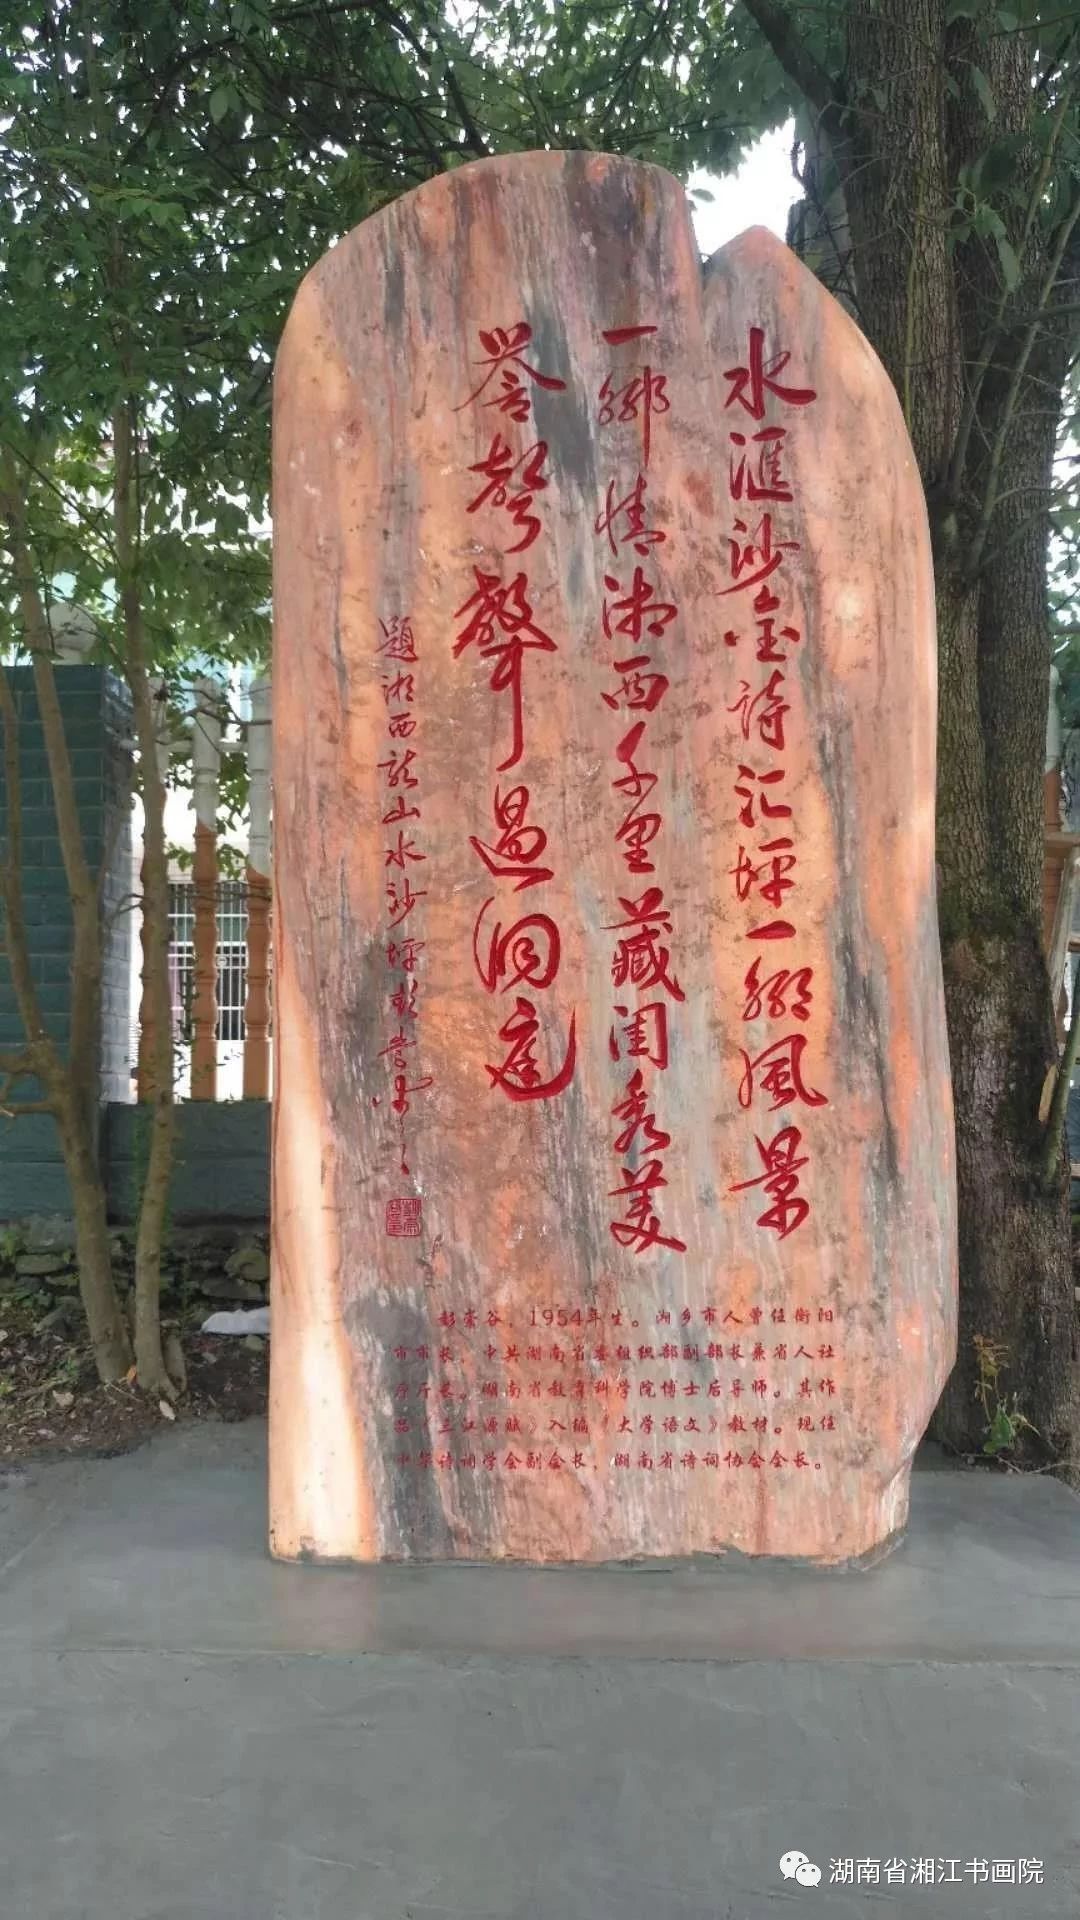 水滙沙金詩汇坪一鄉風景
一鄉情湘西千里藏闺秀美
誉聲聲過洞庭
題湘西龙山水沙坪彭崇谷
彭崇谷，1954年生。湘乡市人曾任衡阳
市市长，中共湖南省委组织部副部长兼省人社
厅厅长。湖南省教育科学院博士后导师。其作
品《三江源赋》入编《大学语文》教材。现任
中华诗词学会副会长，湖南省诗词协会会长。
湖南省湘江书画院